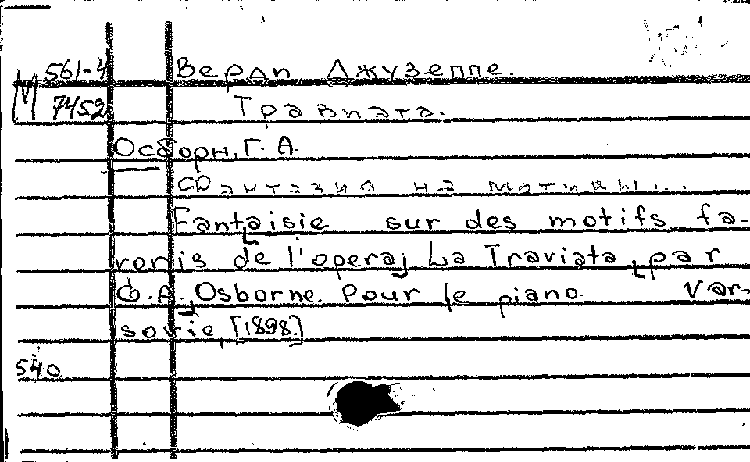 М 561-4 Верди Джузеппе.
7452 Травиата.
Осборн, Г. А.
Фантазия на мотивы...
Fantaisie sur des motifs fa-
voris de l'opera, La Traviata, par
G. A. Osborne. Pour le piano. Var-
sovie, [1898]
540